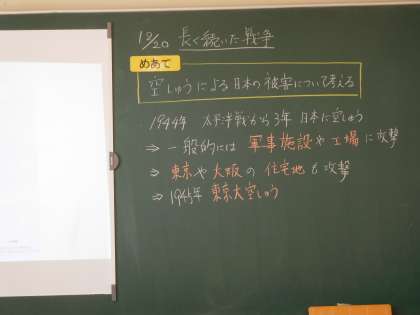 12/20 長く続いた戦争
めあて
空しゅうによる日本の被害について考える
1944年 太平洋戦から3年 日本に空しゅう
⇒ 一般的には 軍事施設や工場に攻撃
⇒ 東京や大阪の住宅地も攻撃
⇒ 1945年 東京大空しゅう